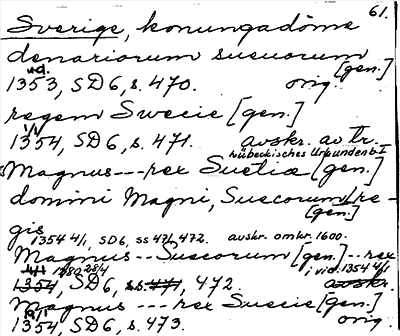 61.
Sverige, konungadöme
denariorum sueuorum [gen.]
u.d.
1353, SD6, s. 470. orig.
regem Swecie [gen.]
1/1
1354, SD6, s. 471. avskr. av tr.
Lübeckisches Urkundenb I
Magnus---rex Suetiæ [gen.]
domini Magni, Suecorum re-
[gen.]
gis
1354 4/1, SD6, ss 471, 472. avskr. omkr. 1600.
Magnus--Sueorum [gen.]--rex
1354, SD6, 472. i vid. 1354 4/1
Magnus ---- rex Suecie [gen.]
1354, SD6, s. 473. orig.